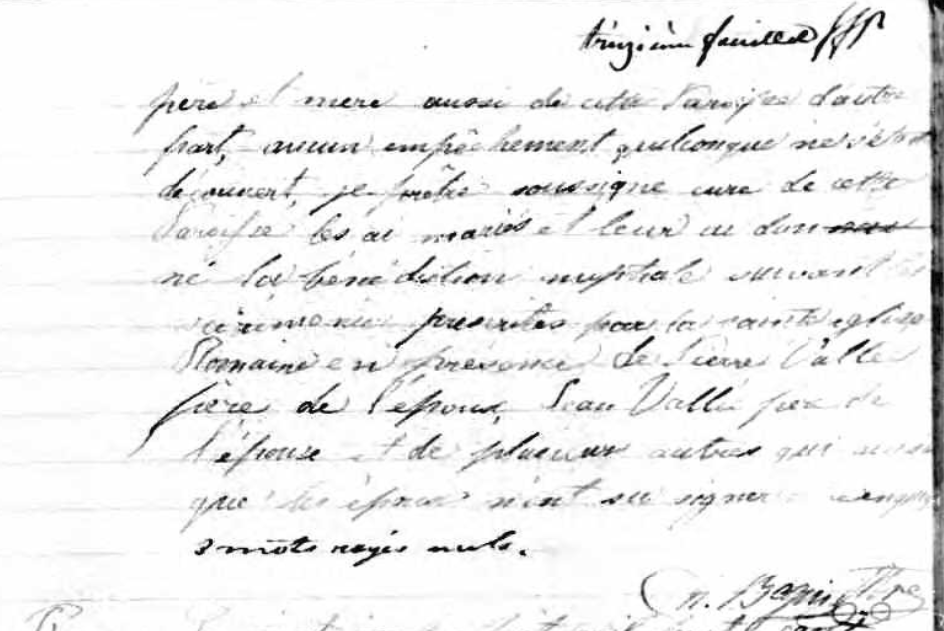 treizième feuillet
père et mere aussi de cette Paroisse d'autre
part, aucun empêchement quelconque ne s'étant
découvert, je prêtre soussigné curé de cette
Paroisse les ai mariés et leur ai don
né la bénédiction nuptiale suivant les
cérémonies prescrites par la sainte eglise
Romaine en présence de Pierre Vallé
père de l'époux, Jean Vallé père de
l'épouse et de plusieurs autres qui
que les époux n'ont su signer
3 mots rayés nuls.
n. Ptre